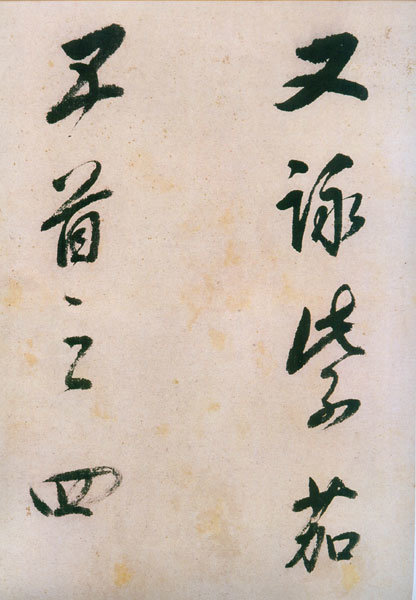 又詠紫茄
首之四